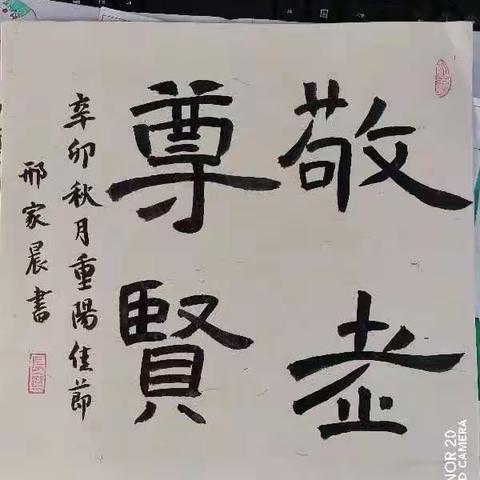 敬老
尊賢
辛卯秋月重陽佳節
邢家晨書
NOR 20
D CAMERA